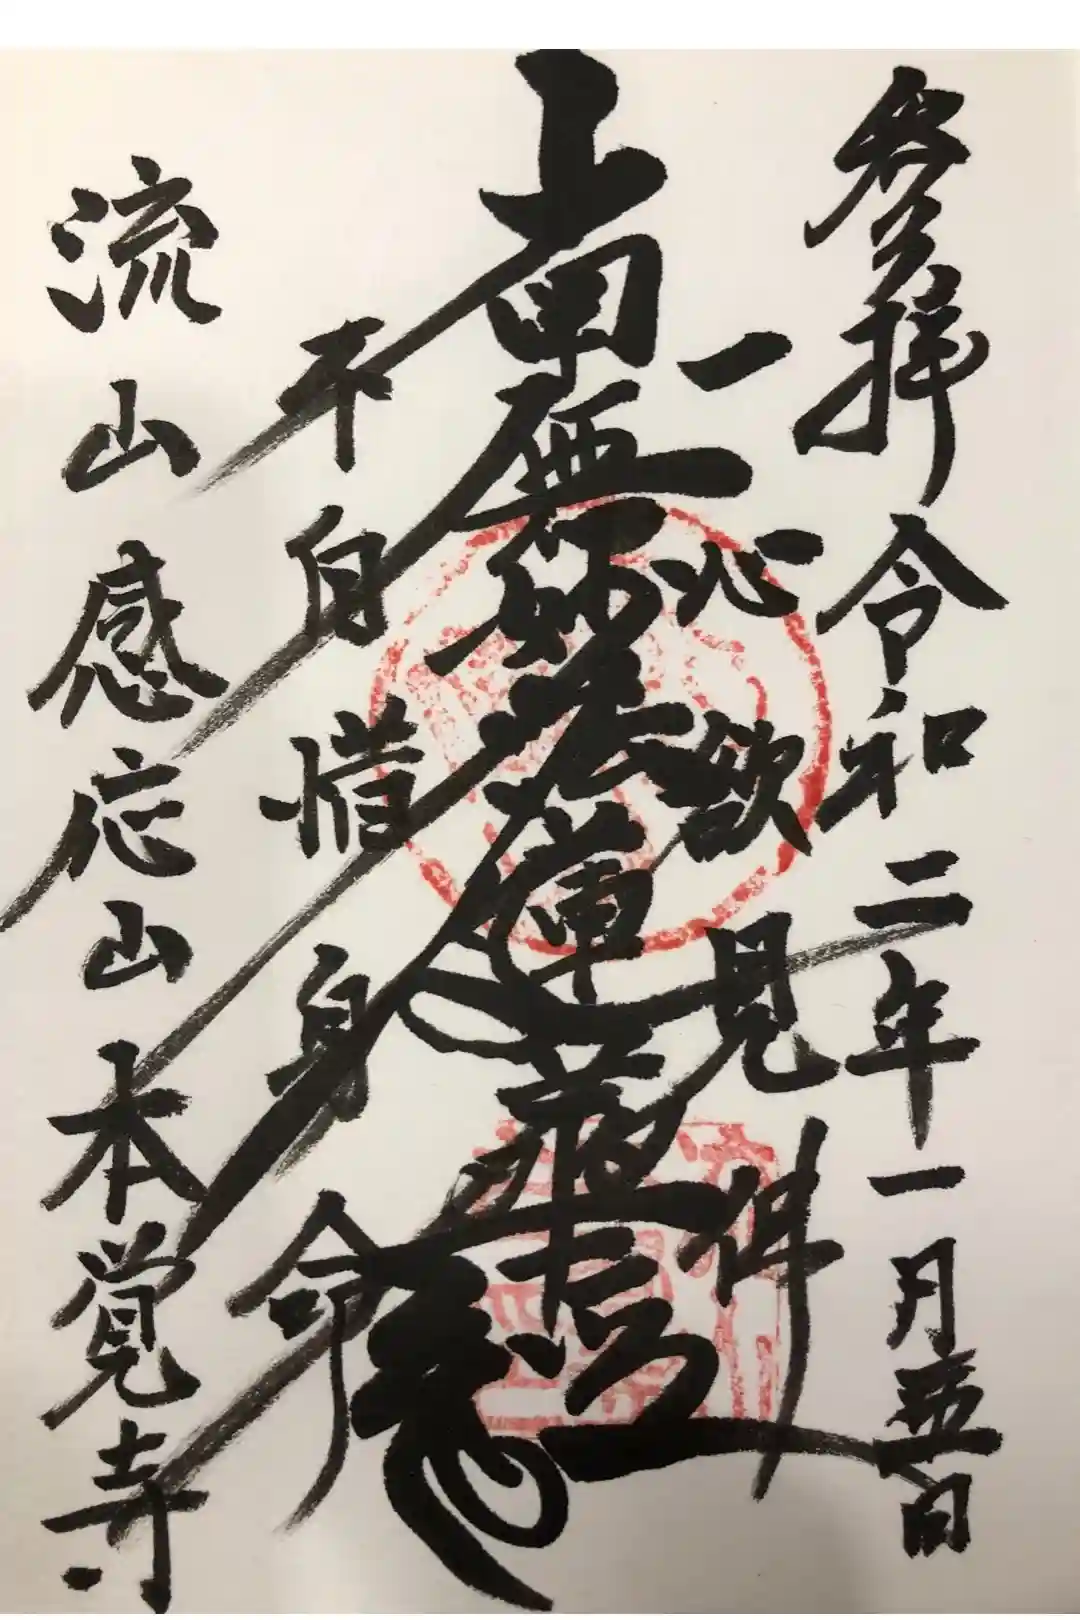 参拝 令和二年一月 日
一心欲見佛
南無妙法蓮華経
不自惜身命
流山 感応山 本覚寺